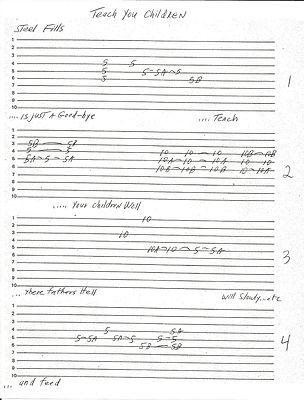 Teach You Children
Steel Fills
1
2
3
4 5 5
5 5 5-5A-5
6 5 5B
7
8
9
10
1
....is just a Good-bye .... Teach
1
2
3 5B 5B
4 5 5 10 10-10 10B-10B
5 5A-5-5A 10A-10-10A 10-10
6 10B-10B-10B 10-10A
7
8
9
10
2
..... Your Children Well
1 10
2
3 10
4
5 10A-10-5-5A
6
7
8
9
10
3
...There fathers Hell Will Slowly...etc
1
2
3
4 5 5A
5 5-5A 5A-5 5-5
6 5B-5B
7
8
9
10
4
... and feed